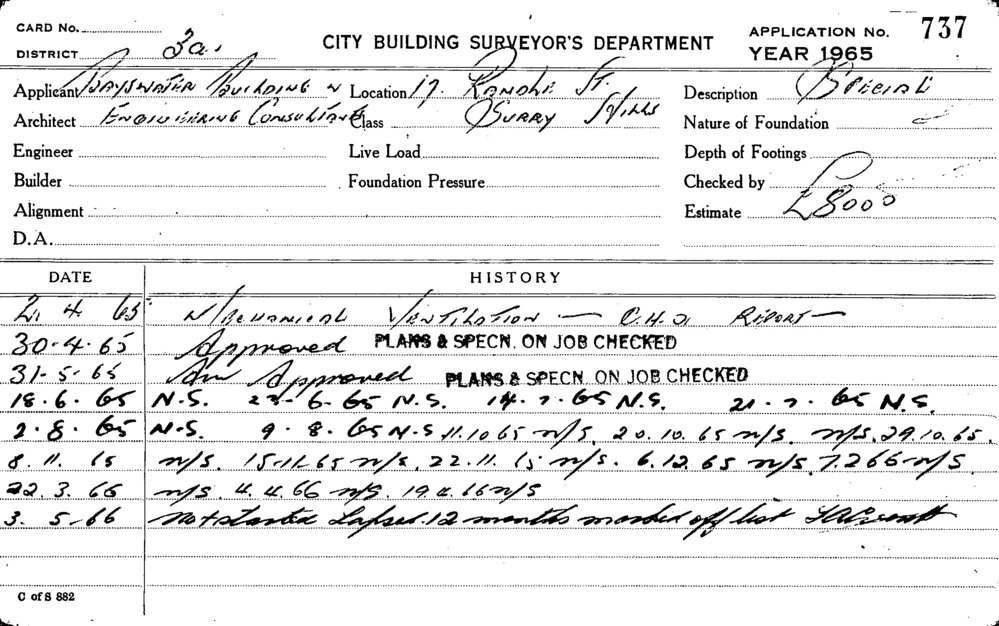 CARD No. CITY BUILDING SURVEYOR'S DEPARTMENT APPLICATION No. 737
DISTRICT 3a. YEAR 1965
Applicant Bayswater Building Location 17. St. Description Special
Architect Engineering Consultant Class Surry Hills Nature of Foundation
Engineer Live Load Depth of Footings
Builder Foundation Pressure Checked by
Alignment Estimate £8000
D.A.
DATE HISTORY
2. 4. 65 Mechanical Ventilation — C.H.O Report —
30.4.65 Approved PLANS & SPECN. ON JOB CHECKED
31.5.65 Am Approved PLANS & SPECN. ON JOB CHECKED
18.6.65 N.S. 6.65 N.S. 14.7.65 N.S. 21.7.65 N.S.
2.8.65 N.S. 9.8.65 N.S 11.10 65 n/s. 20.10.65 n/s. n/s. 29.10.65.
8.11.65 n/s. 15-11-65 n/s. 22.11.65 n/s. 6.12.65 n/s. 7.2 66 n/s
22.3.66 n/s 4.4.66 n/s. 19.4.66 n/s
3.5.66 Not started Lapsed 12 months marked off list
C of S 882